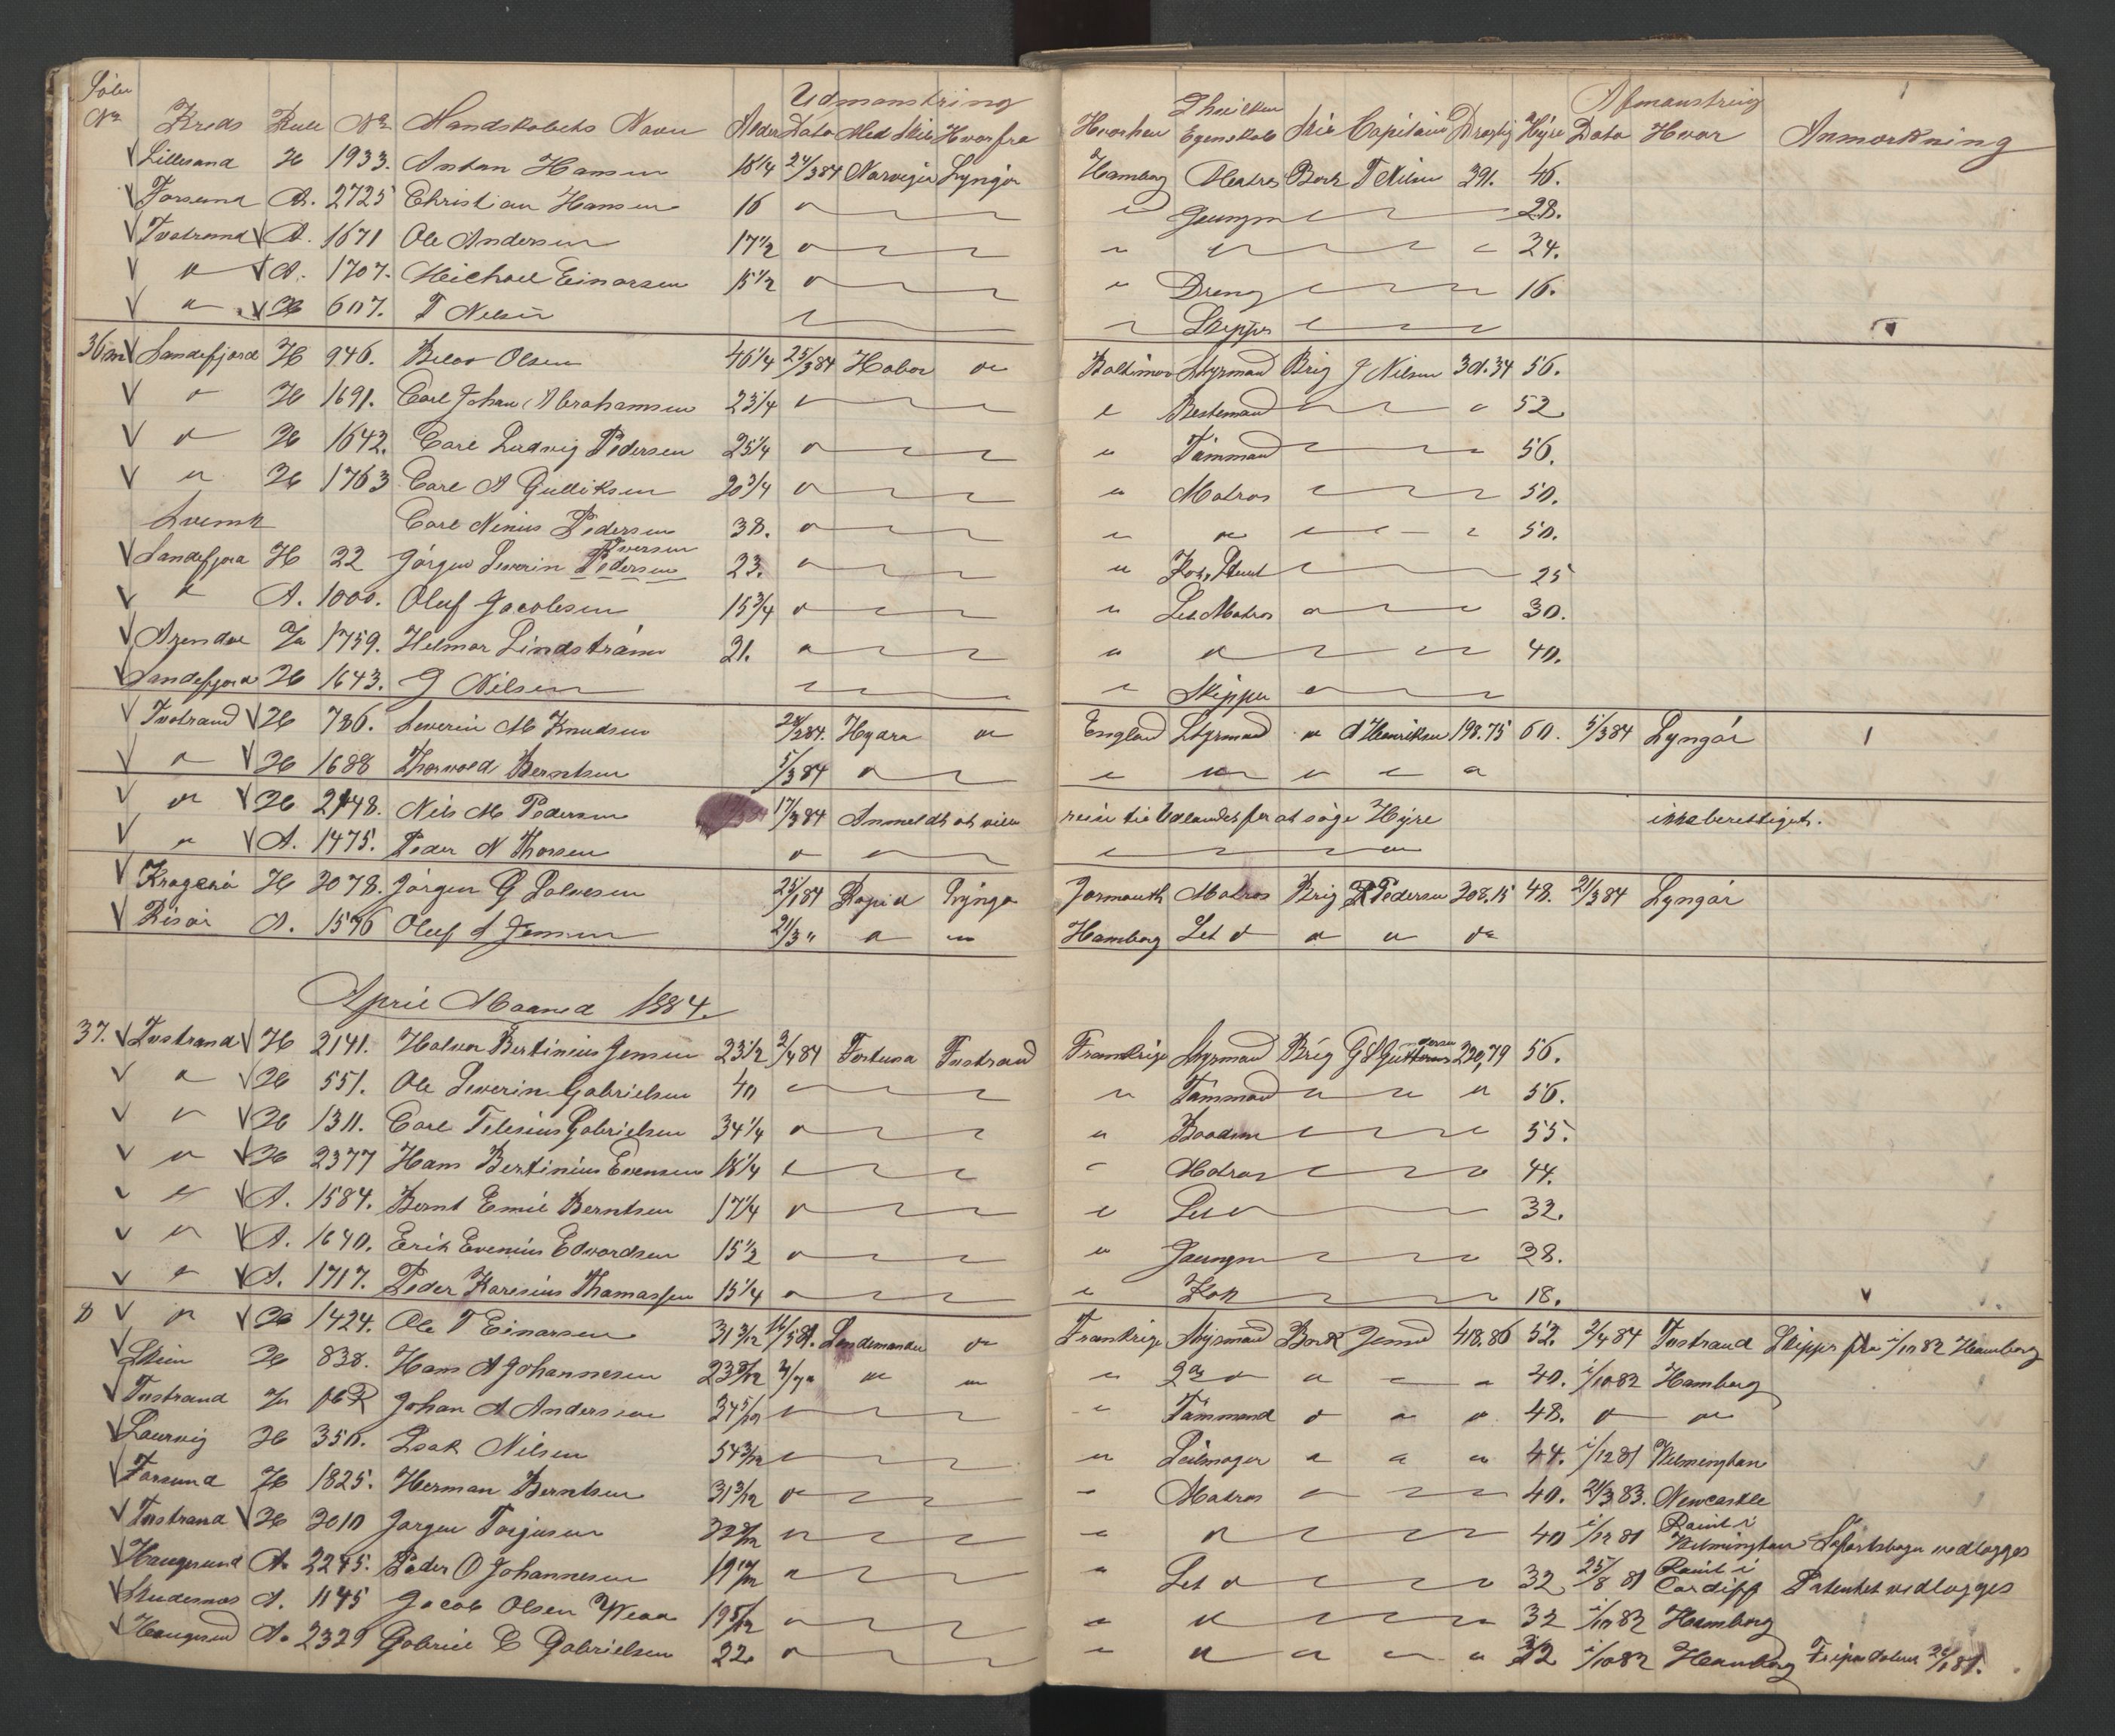 Løbe Nr Kreds Rulle Nr Mandskabets Navn Alder Udmønstring Dato Med Skib Hvorfra Hvorhen I hvilken Egenskab Skib Capitain Drægtig Hyre Afmønstring Dato Hvor Anmærkning
Lillesand H 1933. Anton Hansen 18 1/4 24/3 84 Norvegia Lyngør Hamborg Matros Bark T Nilsen 391. 46.
Farsund A. 2725 Christian Hansen 16 " Jungm 28.
Tvetrand A. 1671 Ole Andersen 17 1/2 " 24.
" A. 1707. Michael Einarsen 15 1/2 " Dreng 16.
" H 607. T Nelsen " Skipper
36 Sandefjord H 946. Olsen 46 1/4 25/3 84 " Baltimor Styrmand Brig J Nilsen 301.34 56.
" H 1691. Carl Johan Abrahamsen 23 1/4 " Bestemand 52
" H 1642. Carl Ludvig Pedersen 25 1/4 " Tømmand 56.
" H 1763 Carl A Gulliksen 20 3/4 " Matros 50.
Svensk Carl Pedersen 38. " " 50.
Sandefjord H 22 Jørgen Severin Pedersen Iversen 23. " Kok 25
" A. 1000. Oluf Jacobsen 15 3/4 " Let Matros 30.
Arendal 1759. Helmar Lindstrøm 21. " " 40.
Sandefjord H 1643. J Nilsen " Skipper
Tvetrand H 786. Severin M Knudsen 84. Hydra " England Styrmand " A Henriksen 198.75 60. 5/3 84 Lyngør 1
" H 1688 Thorvald Berntsen 5/3 84 " " " " " "
" H 2148. Nils M Pedersen 17/3 84 Anmeldt at ville reise til Udlandet for at søge Hyre ikke berettiget.
" A. 1475. Peder N Thorsen " " "
Kragerø H 2078. Jørgen G Salvesen 25/1 84 Rapid Lyngør Jarmouth Matros Brig Pedersen 208.15 48. 21/3 84 Lyngør
Risør A. 1596 Oluf A Jensen 21/3 " " " Hamborg Let " " " "
April Maaned 1884.
37. Tvetrand H 2141. Halvor Bertinius Jensen 23 1/2 2/4 84 Fortuna Tvetrand Frankrige Styrmand Brig 220,79 56.
" H 551. Ole Severin Gabrielsen 40 " Tømmand " " " 56.
" H 1311. Carl Telesius Gabrielsen 34 1/4 " Baadsm 55.
" H 2377 Hans Bertinius Evensen 18 1/4 " Matros 44.
" A. 1584. Bernt Emil Berntsen 17 1/4 " Let " 32.
" A. 1640. Erik Evenius Edvardsen 15 1/2 " Jungm 28.
" A. 1717. Peder Karenius Thomassen 15 1/4 " Kok 18.
8 " H 1424. Ole T Einarsen 31 3/12 " Frankrige Styrmand Bark 418.86 52. 2/4 84 Tvetrand Skipper fra 1/10 82 Hamborg
Skien H 838. Hans A Johannesen " " " 2d " " " " 40. 1/10 82 Hamborg
Tvetrand Johan A Andersen 34 5/12 " Tømmand " " " 48. " "
Laurvig H 350. Isak Nilsen 54 3/12 " Seilmager " " " 44. 1/12 81 Wilmington
Farsund H 1825. Herman Berntsen 31 3/12 " Matros " 40. 21/3 83. Newcastle
Tvetrand H 2010 Jørgen Torjusen " " 40 1/12 81 Rømt i Wilmington Søfartsbogen vedlægges
Haugesund A. 2245. Peder O Johannesen " Let " 32 25/8 81 Rømt i Cardiff Patentet vedlægges
Skudesnæs A. 1145 Jacob Olsen 19 5/12 " " 32 1/10 82 Hamborg
Haugesund A. 2329 Gabriel Gabrielsen 22. " " " " " 32 1/10 82 Hamborg